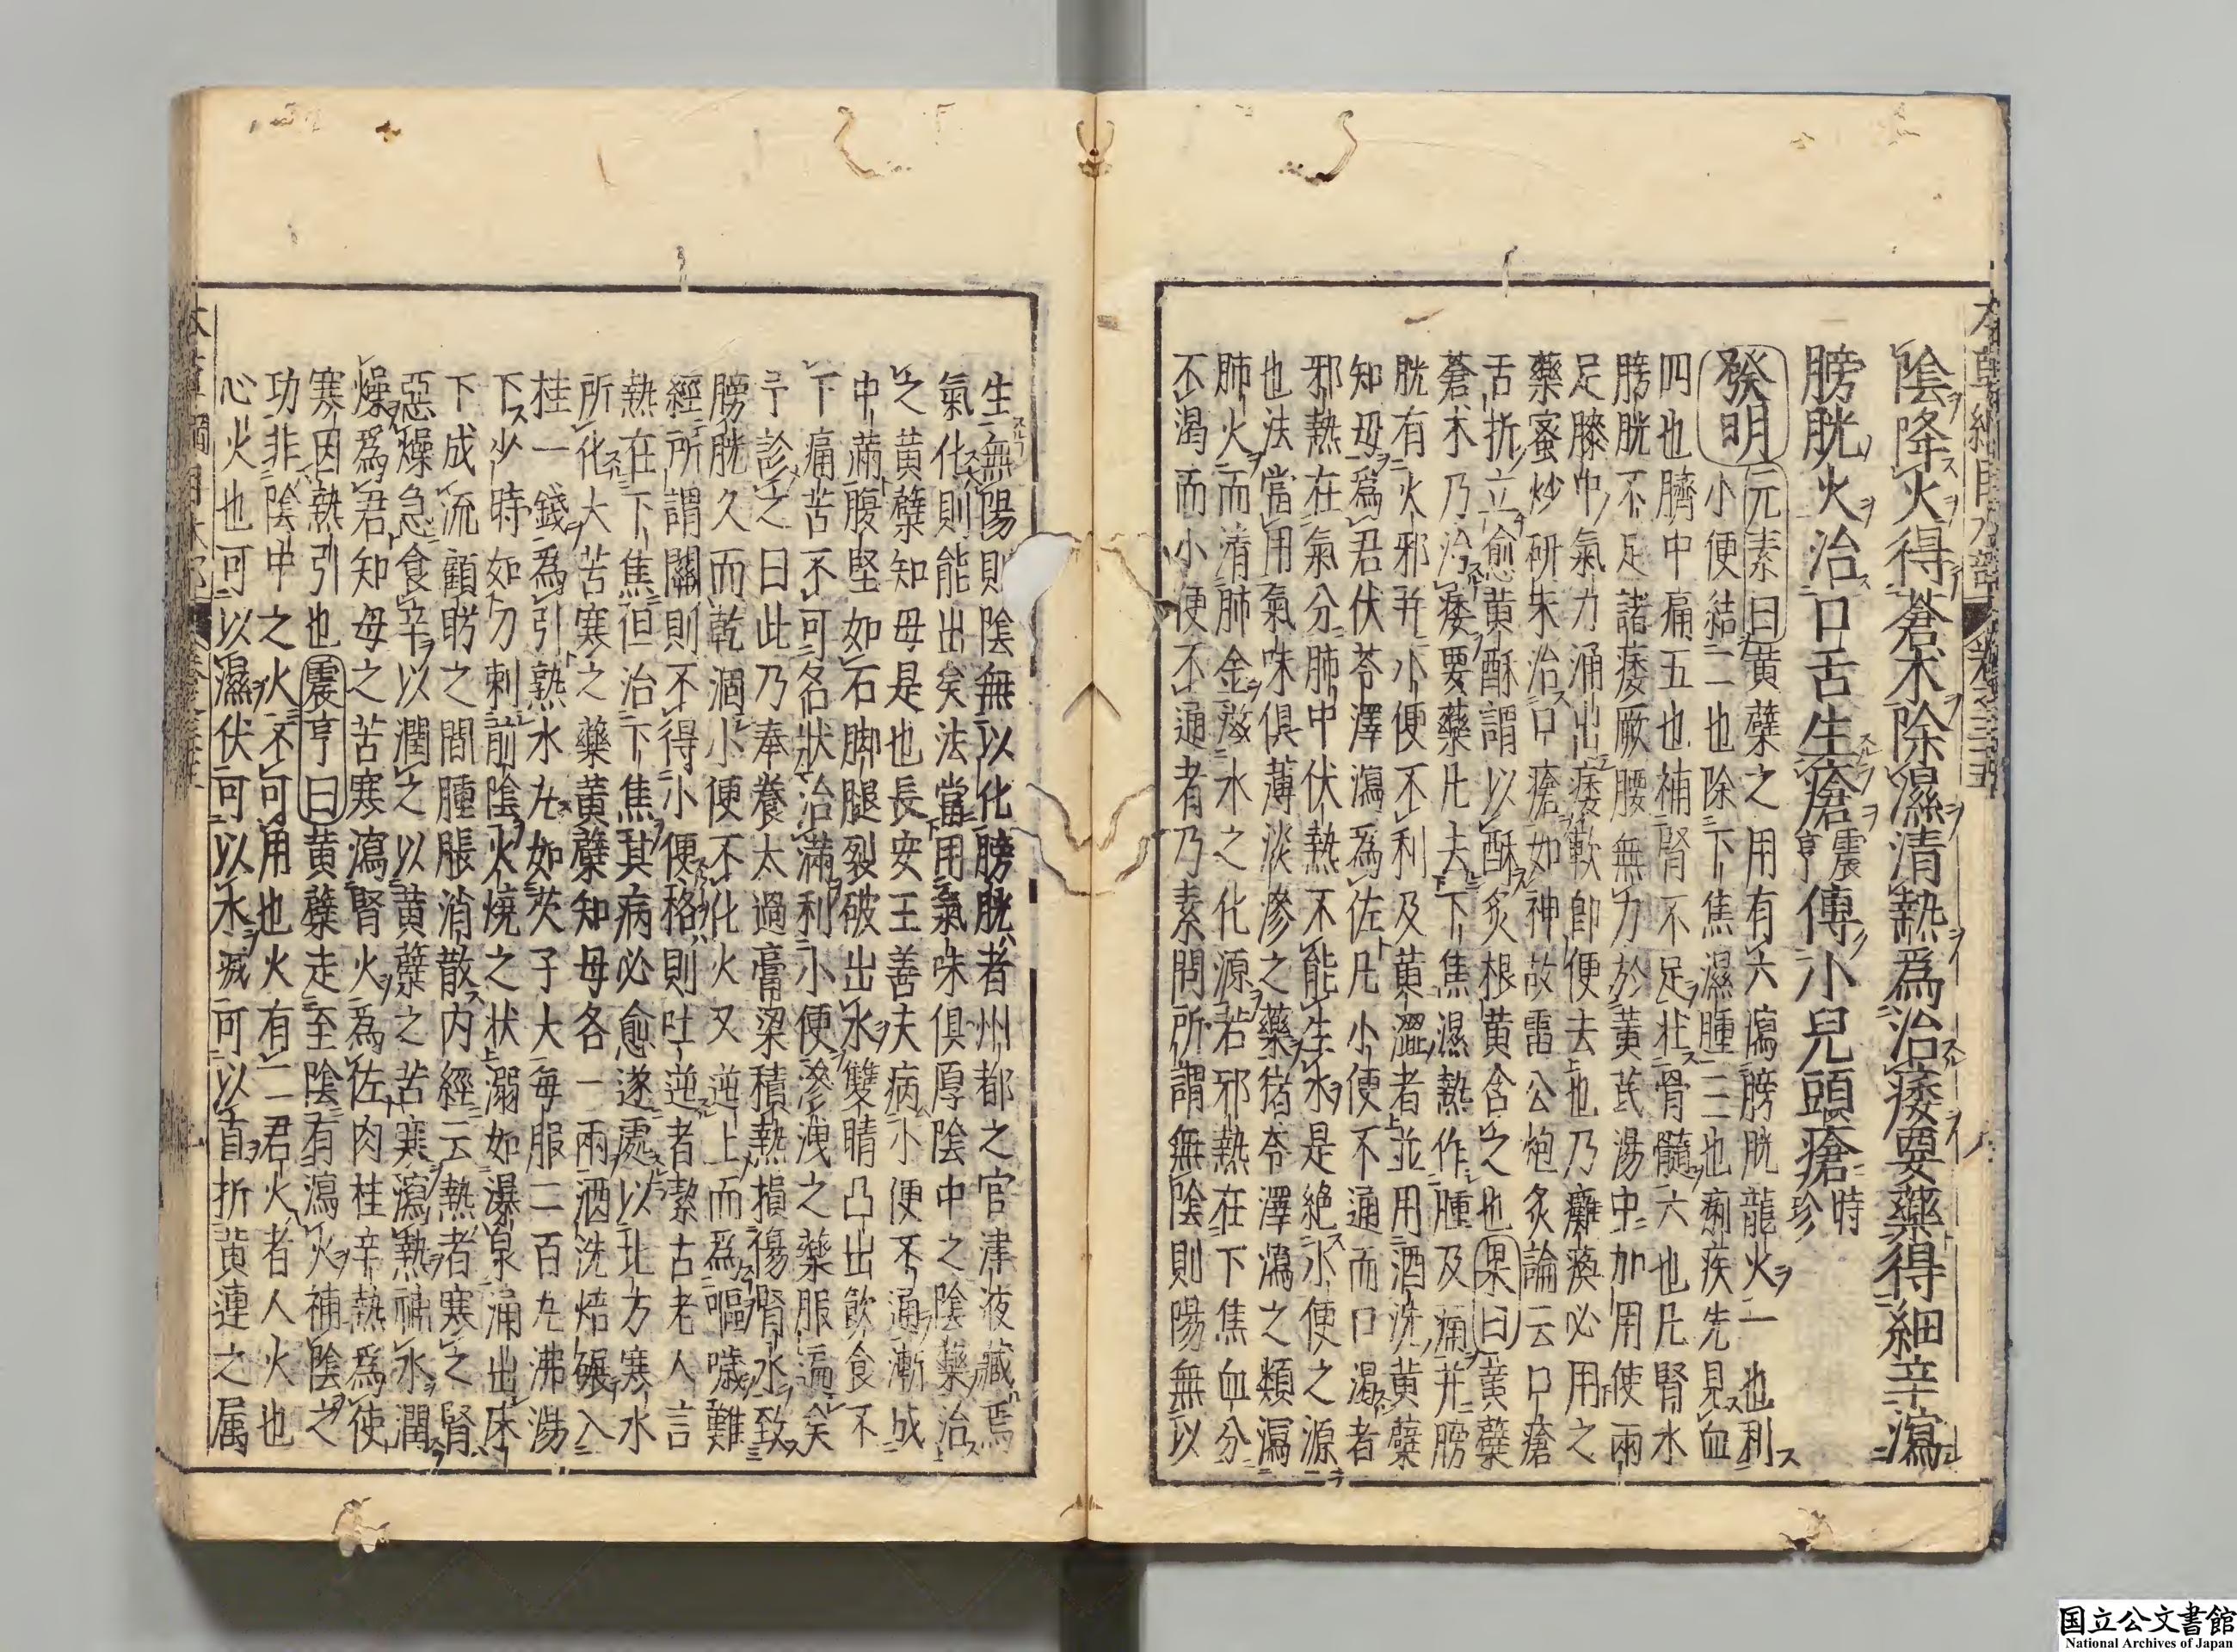 陰降火得蒼术除濕清熱爲治痿要藥得細辛瀉
膀胱火治口舌生瘡震亨傅小兒頭瘡時珍
發明元素曰黃蘗之用有六瀉膀胱龍火一也利
小便結二也除下焦濕腫三也痢疾先見血
四也臍中痛五也補腎不足壯骨髓六也凡腎水
膀胱不足諸痿厥腰無力於黃茋湯中加用使兩
足膝中氣力涌出痿軟即便去也乃癱瘓必用之
藥蜜炒研朱治口瘡如神故雷公炮炙論云口瘡
舌折立愈黃酥謂以酥炙根黃含之也杲曰黃蘗
蒼术乃治痿要藥凡去下焦濕熱作腫及痛并膀
胱有火邪并小便不利及黃澀者並用酒洗黃蘗
知母爲君伏苓澤瀉爲佐凡小便不通而口渴者
邪熱在氣分肺中伏熱不能生水是絕水便之源
也法當用氣味俱薄淡滲之藥猪苓澤瀉之類瀉
肺火而淸肺金滋水之化源若邪熱在下焦血分
不渴而小便不通者乃素問所謂無陰則陽無以
生無陽則陰無以化膀胱者州都之官津液藏焉
氣化則能出矣法當用氣味俱厚陰中之陰藥治
之黃蘗知母是也長安王善夫病小便不通漸成
中滿腹堅如石脚腿裂破出水雙睛凸出飮食不
下痛苦不可名狀治滿利小便滲洩之藥服遍矣
予診之曰此乃奉養太過膏粱積熱損傷腎水致
膀胱久而乾涸小便不化火又逆上而爲嘔噦難
經所謂關則不得小便格則吐逆者絜古老人言
熱在下焦但治下焦其病必愈遂處以北方寒水
所化大苦寒之藥黃蘗知母各一兩酒洗焙碾入
桂一錢爲引熟水丸如芡子大每服二百丸沸湯
下少時如刀刺前陰火燒之狀溺如瀑泉涌出床
下成流顧盻之間腫脹消散內經云熱者寒之腎
惡燥急食辛以潤之以黃蘗之苦寒瀉熱補水潤
燥爲君知母之苦寒瀉腎火爲佐肉桂辛熱爲使
寒因熱引也震亨曰黃蘗走至陰有瀉火補陰之
功非陰中之火不可用也火有二君火者人火也
心火也可以濕伏可以水滅可以直折黃連之属
国立公文書館
National Archives of Japan